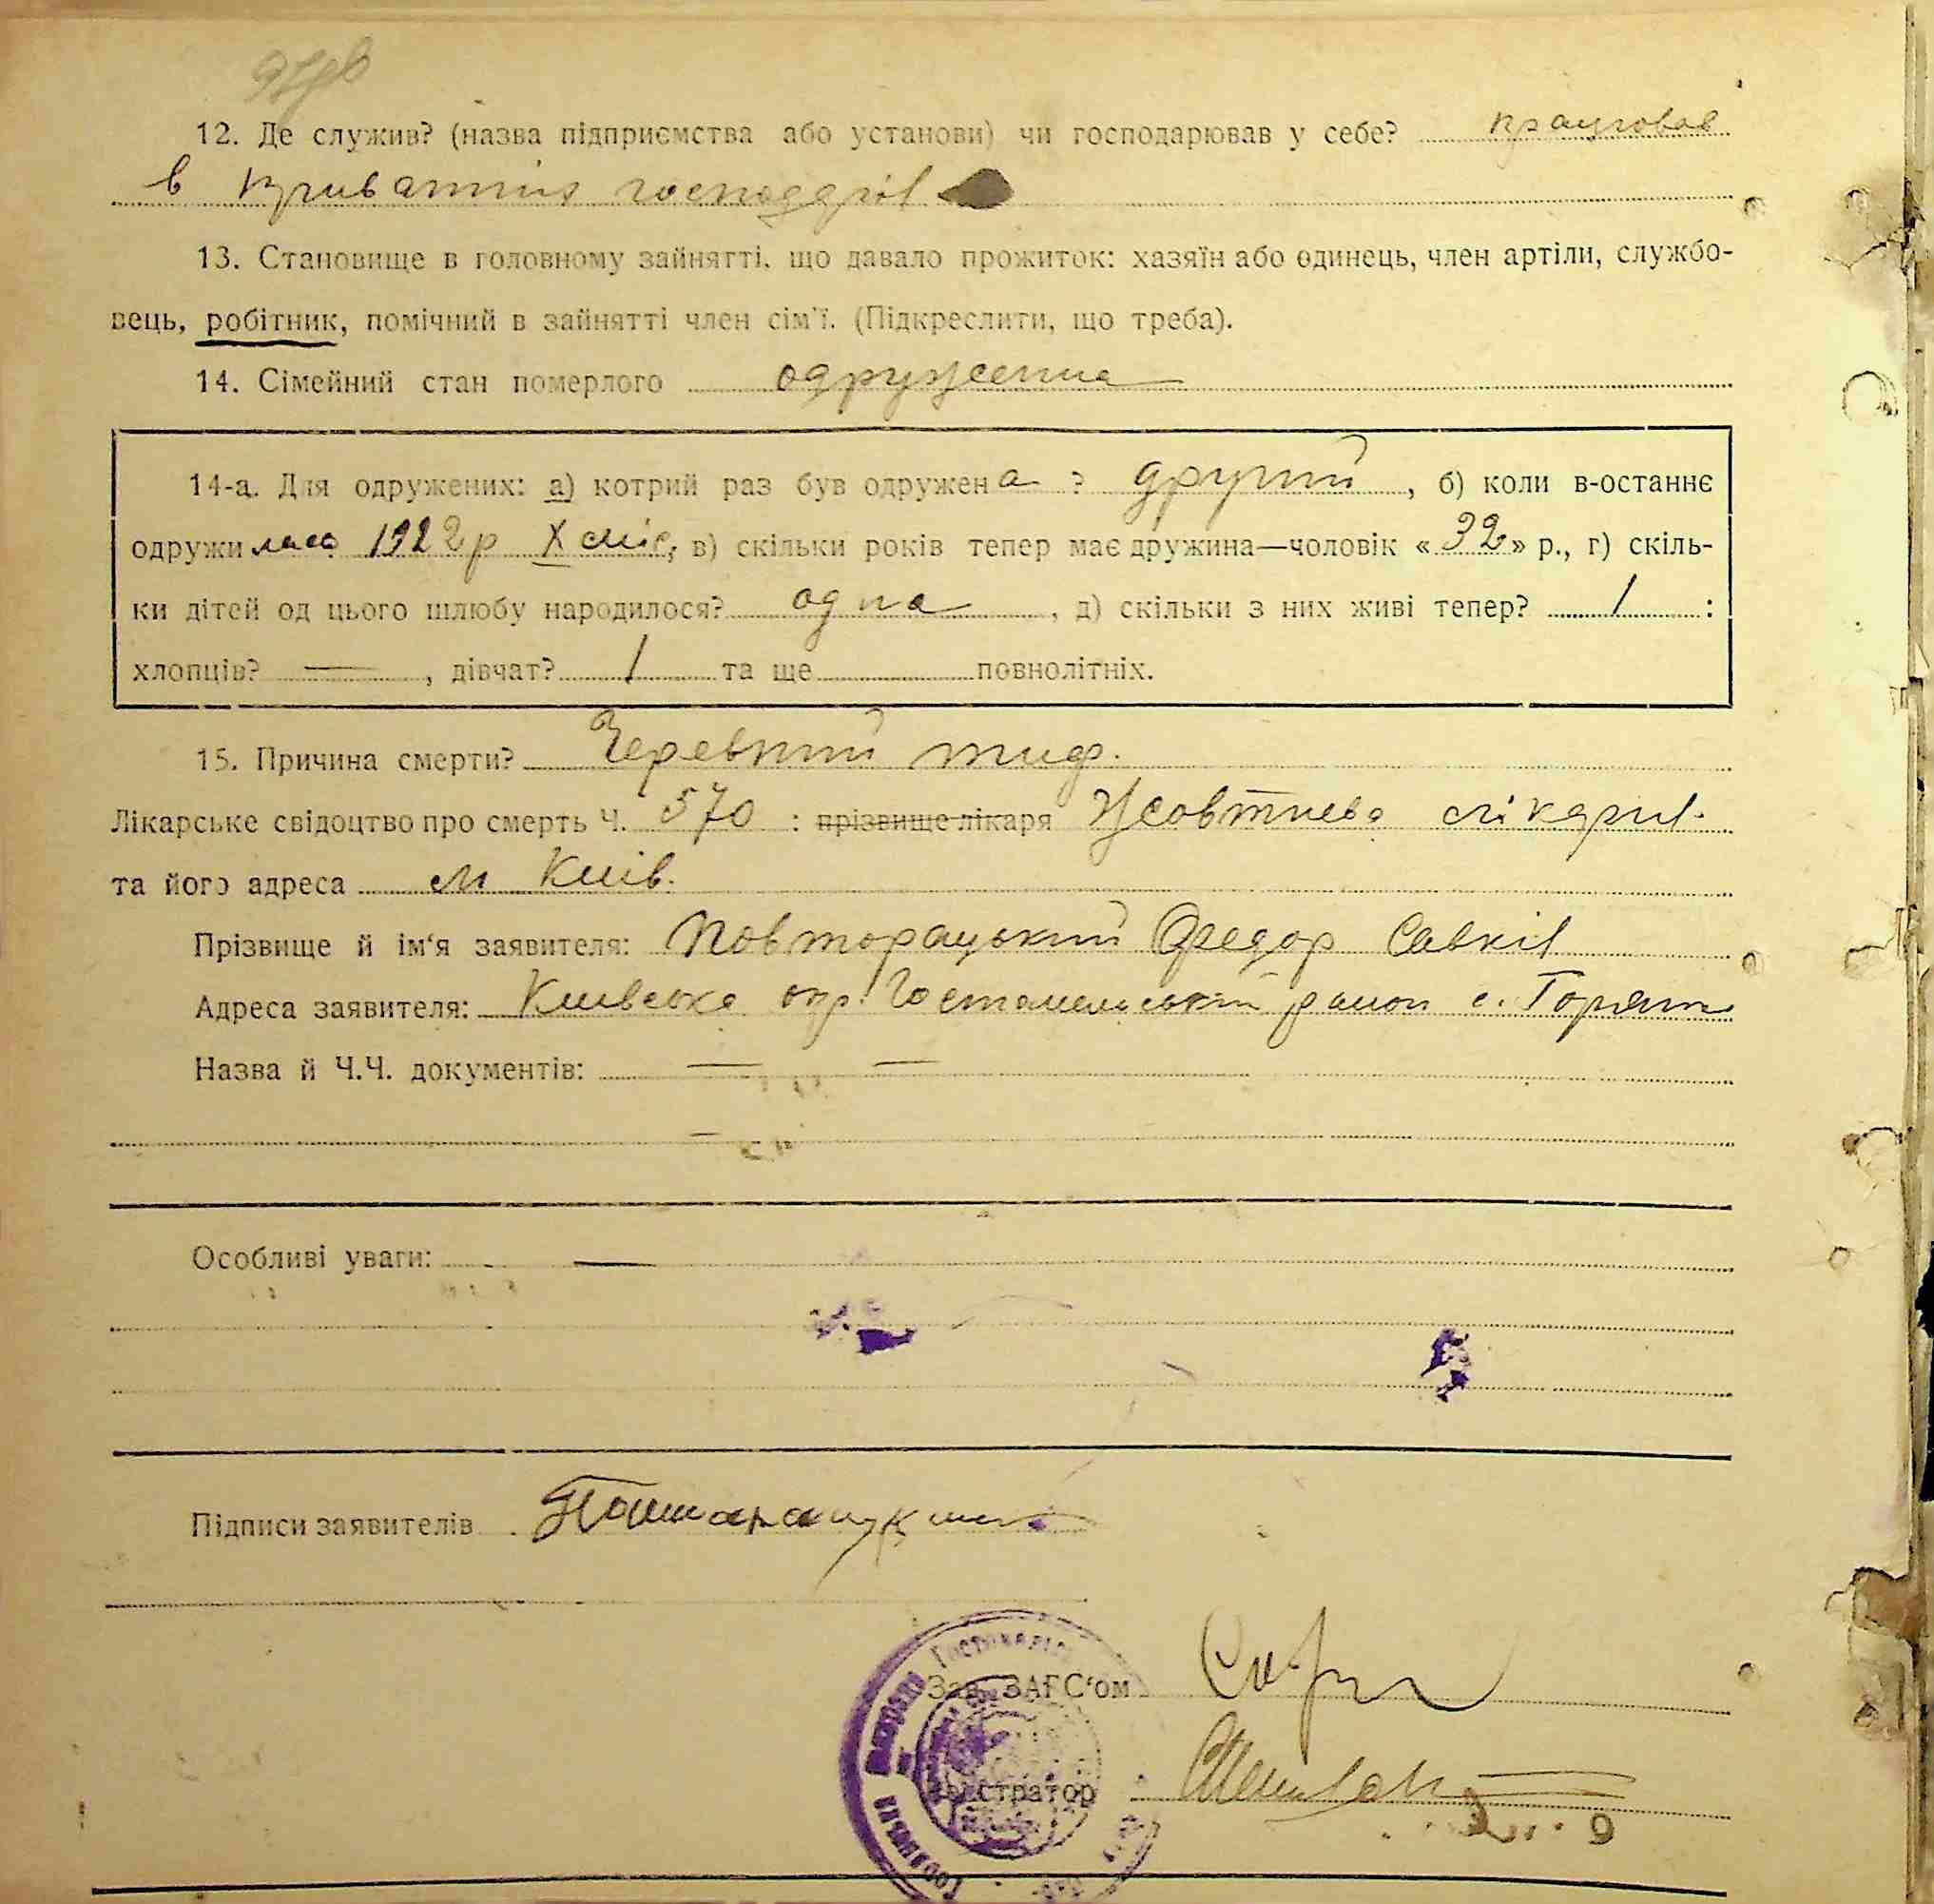 12. Де служив? (назва підприємства або установи) чи господарював у себе? працював
в приватній господарі
13. Становище в головному зайнятті, що давало прожиток: хазяїн або одинець, член артіли, службо-
вець, робітник, помічний в зайнятті член сім'ї. (Підкреслити, що треба).
14. Сімейний стан померлого одружена
14-а. Для одружених: а) котрий раз був одружена? другий, б) коли в-останнє
одружилась 1922 р X міс, в) скільки років тепер має дружина—чоловік «32» р., г) скіль-
ки дітей од цього шлюбу народилося? одна, д) скільки з них живі тепер? 1 :
хлопців? —, дівчат? 1 та ще повнолітніх.
15. Причина смерти? Черевний тиф.
Лікарське свідоцтво про смерть Ч. 570 : прізвище лікаря Жовтнева лікарн.
та його адреса м Київ.
Прізвище й ім'я заявителя: Повторацький Федор Савків
Адреса заявителя: Київська окр. Гостомельський район с.
Назва й Ч.Ч. документів: — —
—
Особливі уваги: —
Підписи заявителів
Зав. ЗАГС'ом
Реєстратор